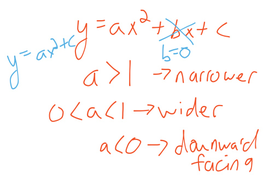 y = ax² + bx + c
y = ax² + c
b = 0
a > 1 → narrower
0 < a < 1 → wider
a < 0 → downward
facing